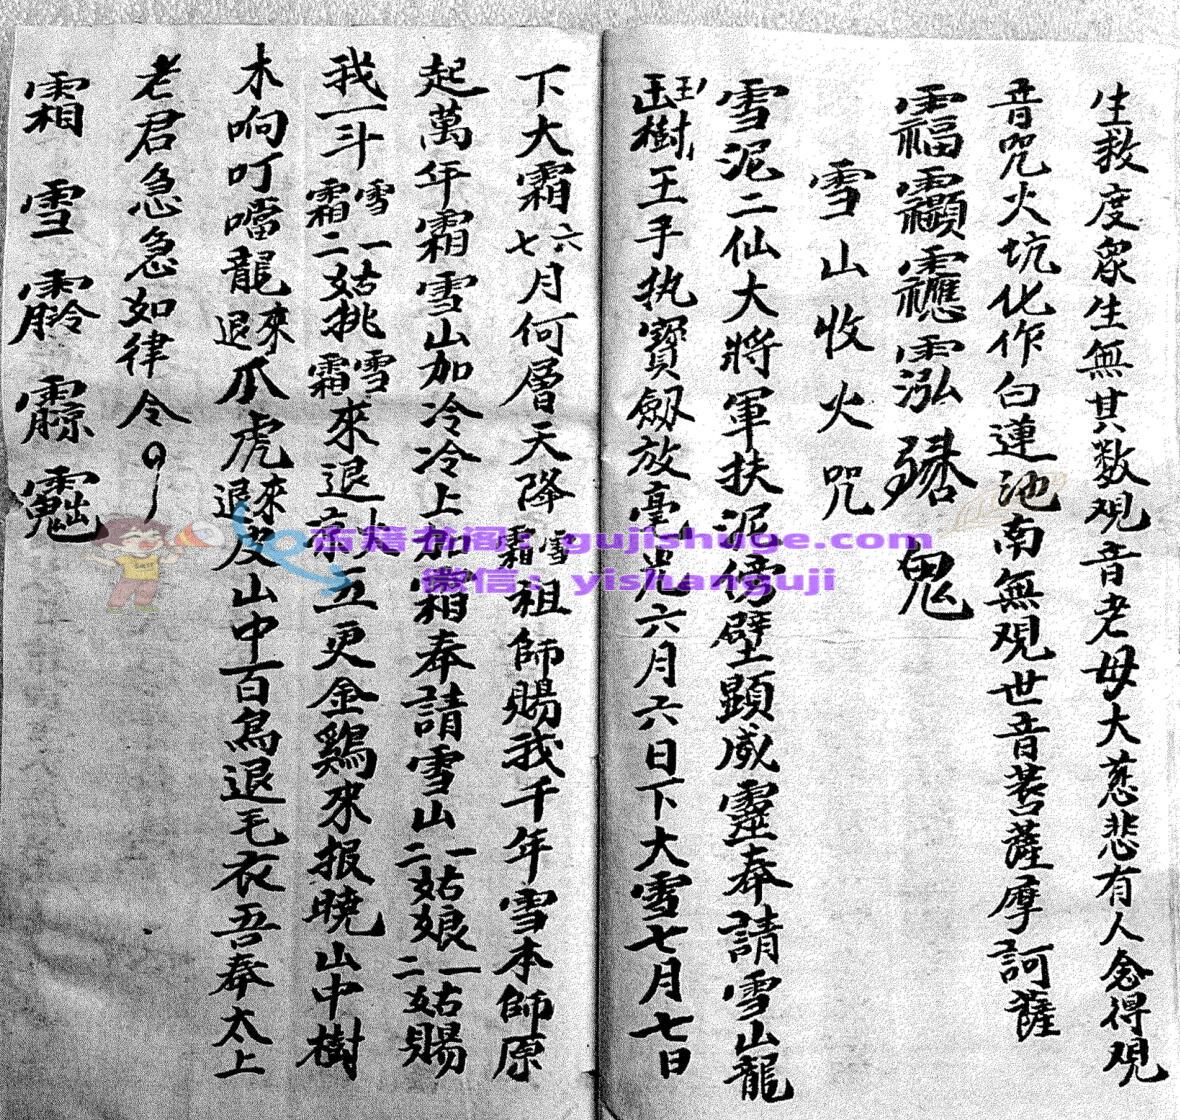 生救度眾生無其数观音老母大慈悲有人念得观
音咒火坑化作白連池南無观世音菩薩摩訶薩
鬼
雪山收火咒
雪泥二仙大將軍扶泥傍壁顕威靈奉請雪山龍
樹王手执寶劔放毫光六月六日下大雪七月七日
下大霜六七月何層天降雪霜祖師賜我千年雪本師原
起萬年霜雪山加冷冷上加霜奉請雪山一二姑娘一二姑賜
我一斗雪霜一二姑挑雪霜來退火京五更金鷄來报曉山中樹
木响叮噹龍來退爪虎來退皮山中百鳥退毛衣吾奉太上
老君急急如律令
霜雪
古籍书阁：gujishuge.com
微信：yishanguji